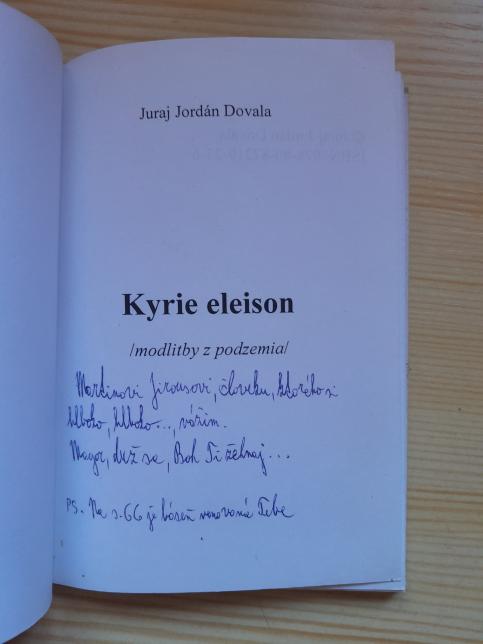 Juraj Jordán Dovala
Kyrie eleison
/modlitby z podzemia/
Martinovi Jirousovi, človeku, ktorého si
hlboko, hlboko..., vážim.
Magor, drž sa, Boh Ti žehnaj...
PS. Na s. 66 je báseň venovaná Tebe